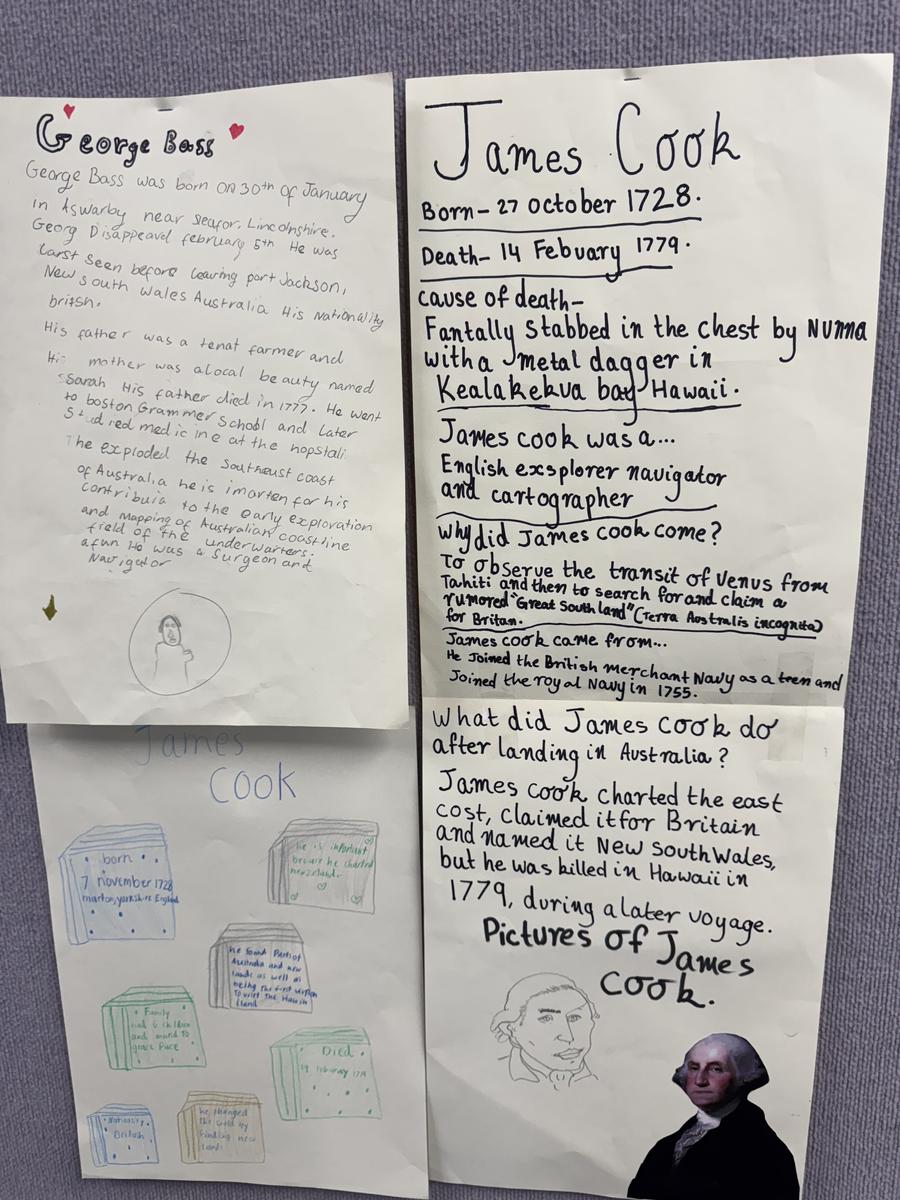 George Bass
George Bass was born on 30th of January
in Aswarby near seafor, Lincolnshire.
Georg Disappeavd february 5th He was
larst seen before leaving port Jackson,
New south wales Australia His Nationality
britsh.
His father was a tenat farmer and
His mother was alocal beauty named
Sarah His father died in 1777. He went
to boston Grammer School and Later
Stud ied medicine at the hopstali
The exploded the Southeust coast
of Australia he is imarten for his
contribuia to the early exploration
and mapping of Australian coastline
field of the underwarters.
afun He was a Surgeon and
Navigator
James Cook
Born- 27 october 1728.
Death- 14 Febuary 1779.
cause of death-
Fantally Stabbed in the chest by Nunna
with a metal dagger in
Kealakekua bay Hawaii.
James cook was a...
English exsplorer navigator
and cartographer
Why did James cook come?
To observe the transit of Venus from
Tahiti and then to search for and claim a
rumored "Great South land" (Terra Australis incognita)
for Britan.
James cook came from...
He Joined the British merchant Navy as a teen and
Joined the royal Navy in 1755.
What did James cook do
after landing in Australia?
James cook charted the east
cost, claimed it for Britain
and named it New South Wales,
but he was killed in Hawaii in
1779, during a later voyage.
Pictures of James
Cook.
James
Cook
born
7 november 1728
marton, yorkshire England
he is important
because he charted
newzeland.
he found Parts of
Australia and new
lands as well as
being the first
To visit The Hawiin
Island
Family
had 6 children
and marid to
grace Place
Died
14 February 1779
Nationality
British
he changed
the world by
finding new
land